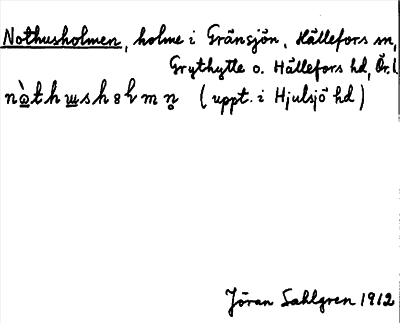 Nothusholmen, holme i Gränsjön, Hällefors sn,
Grythytte o. Hällefors hd, Ör. l
nòthusholmn̥ (uppt. i Hjulsjö hd)
Jöran Sahlgren 1912